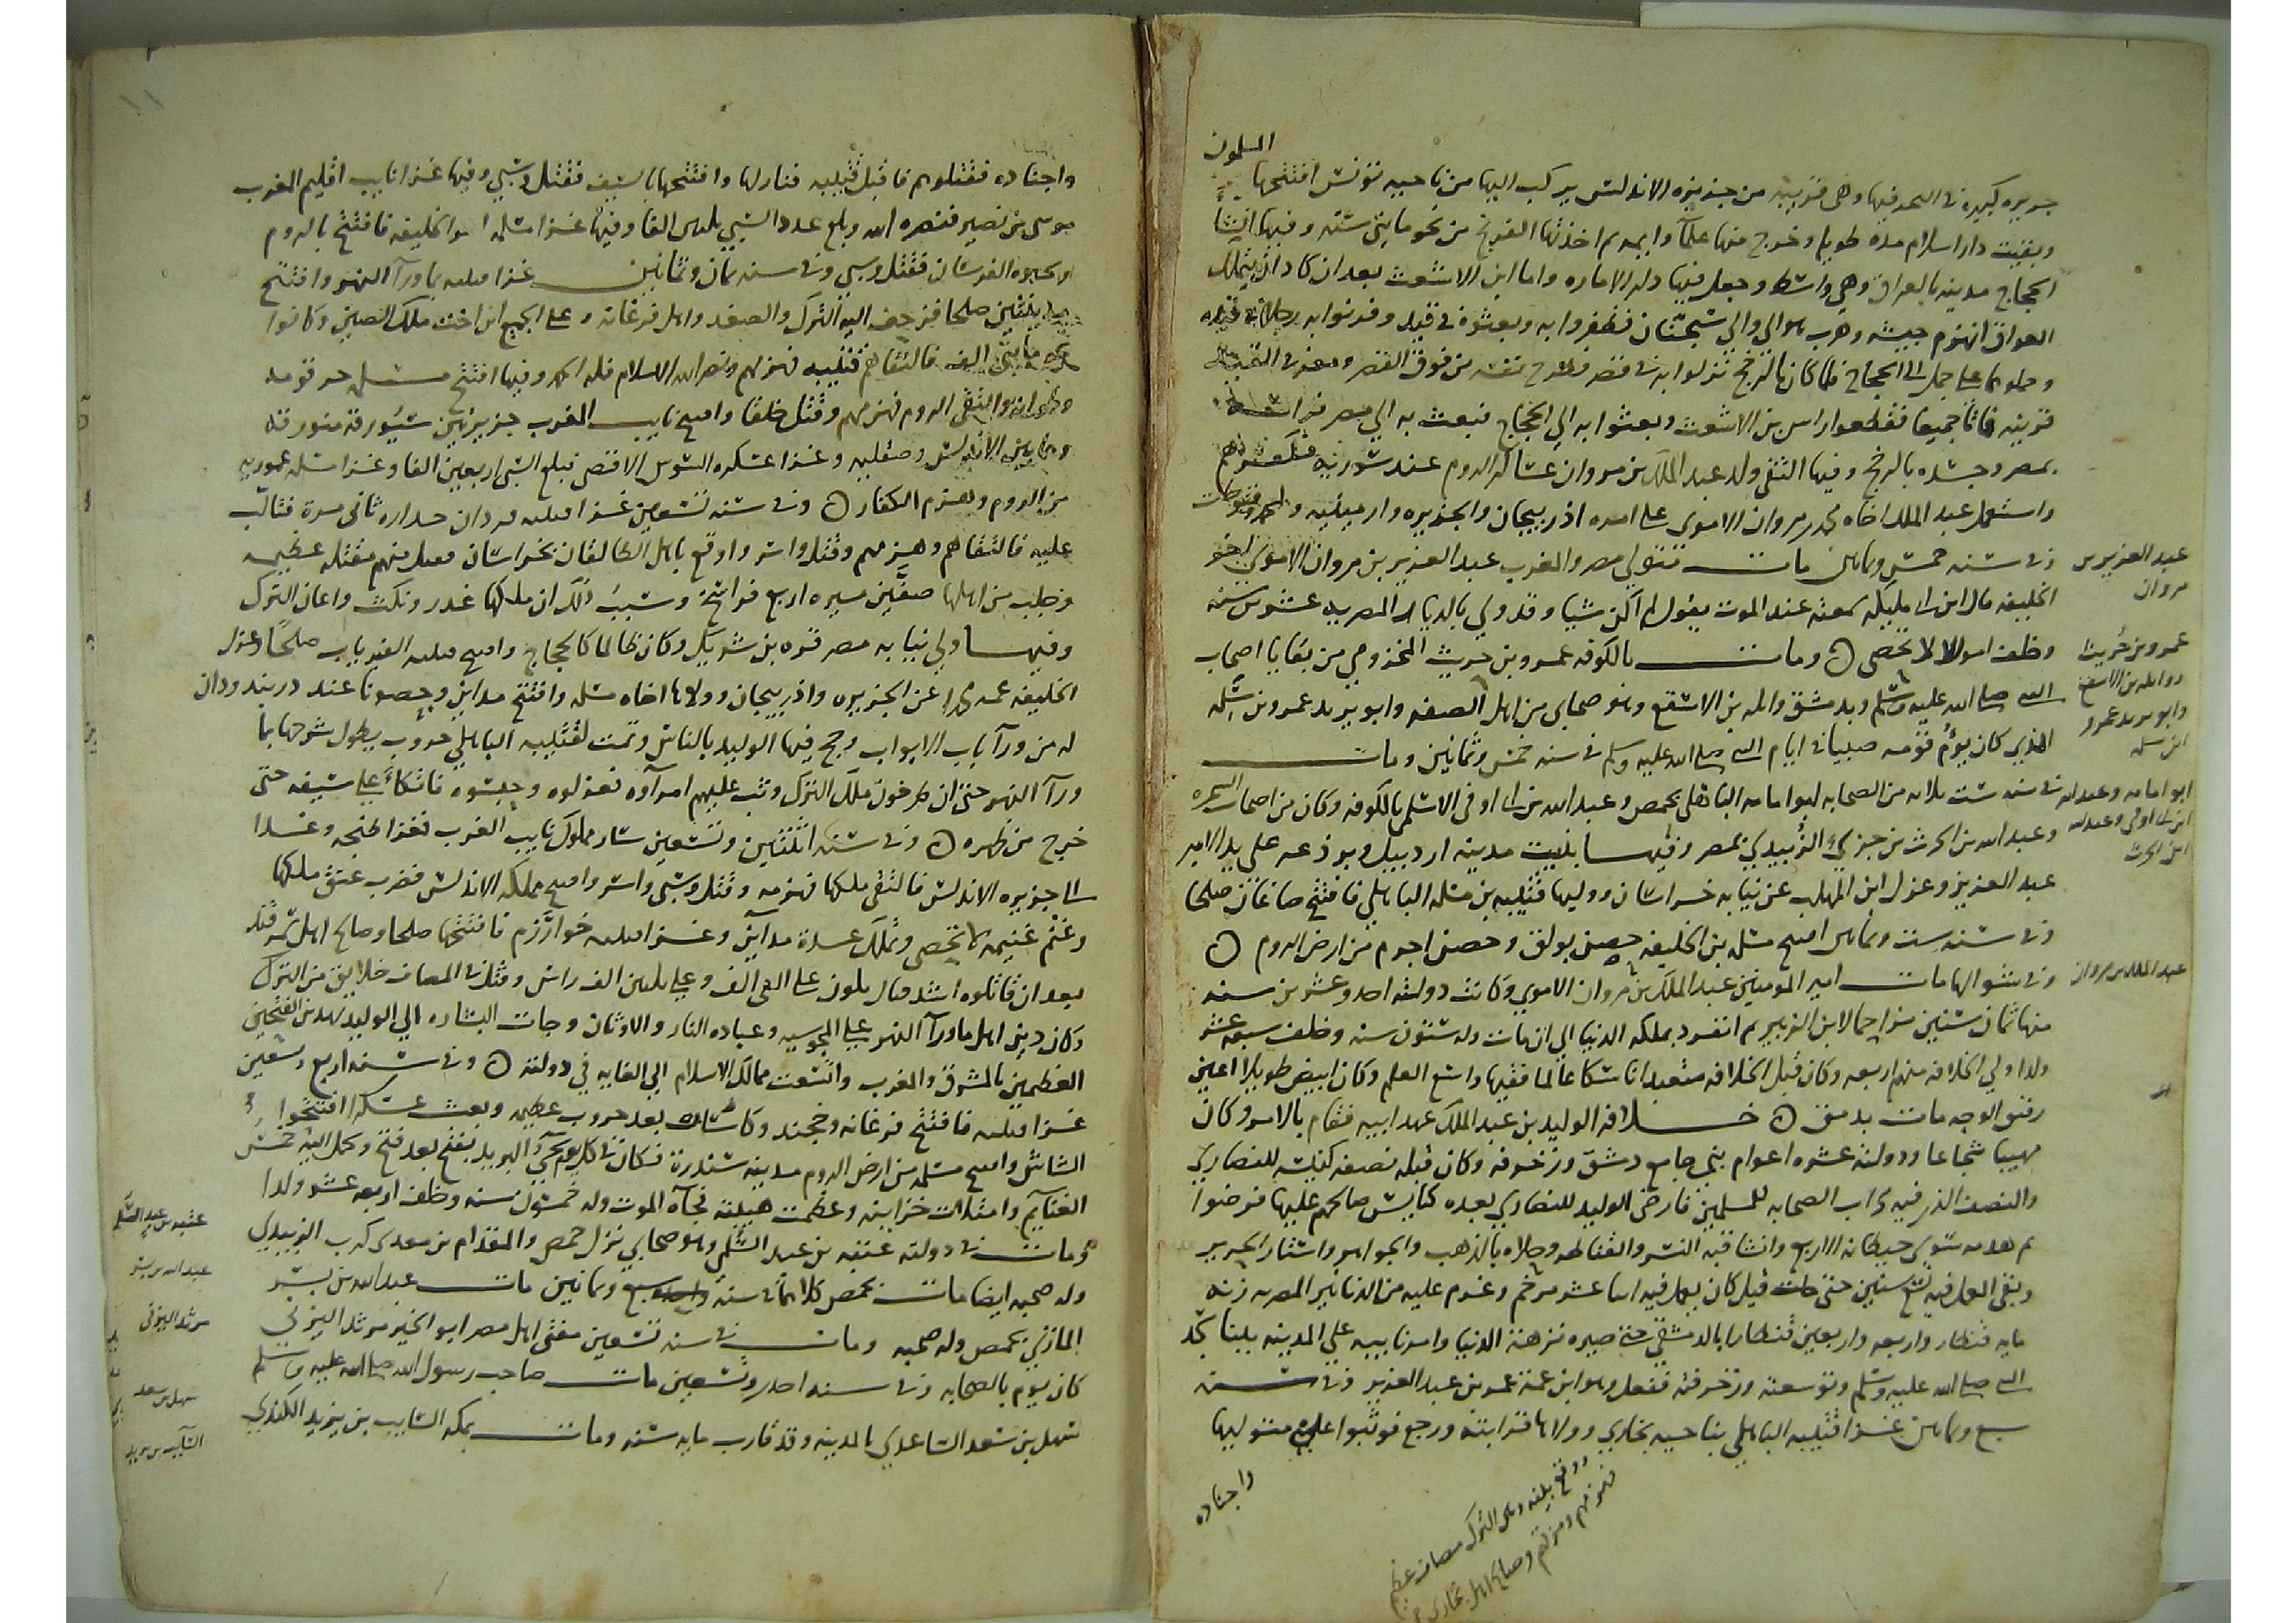 المسلمون
جزيره كبيره في البحر فيها وهي قريبه من جزيره الاندلس يركب اليها من ناحيه تونس افتتحها
وبقيت دار اسلام مده طويله وخرج منها علمآ وايمه ثم اخذتها الفرنج من نحو مايتي سنه وفيها انشأ
الحجاج مدينه بالعراق وهي واسط وجعل فيها دار الاماره واما ابن الاشعث بعد ان كاد ان يتملك
العراق انهزم جيشه وهرب هو الي والي سجستان فظفروا به وبعثوه في قيد وقرنوا به رجلا في قيده
وحملوهما علي جمل الى الحجاج فلما كان بالرخج نزلوا به في قصر فطرح نفسه من فوق القصر ومعه في القيد
قرينه فماتا جميعا فقطعوا راس بن الاشعث وبعثوا به الي الحجاج فبعث به الي مصر فراسه
بمصر وجسده بالرخج وفيها التقى ولد عبد الملك بن مروان عساكر الروم عند سوريه فكسرهم
واستعمل عبد الملك اخاه محمد بن مروان الاموى على امره اذربيجان والجزيره وارمينيه وله حروب وفتوحات
وفي سنه خمس وثمانين مات متولي مصر والمغرب عبد العزيز بن مروان الاموي اخو
الخليفه قال ابن ابي مليكه سمعته عند الموت يقول ليتني لم اكن شيا وقد ولي بالديار المصريه عشرين سنه
وخلف اموالا لا تحصى ٥ ومات بالكوفه عمرو بن حريث المخزومي من بقايا اصحاب
النبي صلى الله عليه وسلم وبدمشق واثله بن الاسقع وهو صحابي من اهل الصفه وابو يزيد عمرو بن سلمه
الذي كان يؤم قومه صبيا في ايام النبي صلى الله عليه وسلم في سنه خمس وثمانين ومات
في سنه ست ثلاثه من الصحابه ابو امامه الباهلي بحمص وعبد الله بن ابي اوفى الاسلمي بالكوفه وكان من اصحاب الشجره
وعبد الله بن الحرث بن جزء الزبيدي بمصر وفيها بنيت مدينه اردبيل وبرذعه على يد الامير
عبد العزيز وعزل ابن المهلب عن نيابه خراسان ووليها قتيبه بن مسلم الباهلي فافتتح صاغان صلحا
وفي سنه ست وثمانين افتتح مسلمه بن الخليفه حصن بولق وحصن اجرم من ارض الروم ٥
وفي شوالها مات امير المومنين عبد الملك بن مروان الاموي وكانت دولته احد وعشرين سنه
منها ثمان سنين مزاحما لابن الزبير ثم انفرد بمملكه الدنيا الي ان مات وله ستون سنه وخلف سبعه عشر
ولدا ولي الخلافه منهم اربعه وكان قبل الخلافه متعبدا ناسكا عالما فقيها واسع العلم وكان ابيض طويلا اعين
رقيق الوجه مات بدمشق ٥ خلافه الوليد بن عبد الملك عهد ابيه فقام بالامر وكان
مهيبا شجاعا ودولته عشره اعوام بنى جامع دمشق وزخرفه وكان قبله نصفه كنيسه للنصاري
والنصف الذي فيه محراب الصحابه للمسلمين فارضى الوليد للنصاري بعده كنايس صالحهم عليها فرضوا
ثم هدمه سوى حيطانه الاربع وانشا قبه النسر والقناطر وحلاه بالذهب والجواهر واستار الحرير
وبقى العمل فيه تسع سنين حتى قيل كان يعمل فيه اثنا عشر مرخم وغرم عليه من الدنانير المصريه زنه
مايه قنطار واربعه واربعين قنطارا بالدمشقي حتى صيره نزهه الدنيا وامر نايبه علي المدينه ببنا مسجد
النبي صلى الله عليه وسلم وتوسعته وزخرفته ففعل وهو ابن عمه عمر بن عبد العزيز وفي سنه
سبع وثمانين غزا قتيبه الباهلي بناحيه بخاري وولاها قرابته ورجع فوثبوا على متوليها
واجناده
ووقع بينه وبين الترك مصاف عظيم
فهزمهم ومزقهم وصالح اهل بخارى
عبد العزيز بن
مروان
عمرو بن حريث
وواثله بن الاسقع
وابو يزيد عمرو
ابن سلمه
ابو امامه وعبد الله
ابن ابي اوفى وعبد الله
ابن الحرث
عبد الملك بن مروان
١١
واجناده فقتلوهم فاقبل قتيبه فنازلها وافتتحها بالسيف فقتل وسبي وفيها غزا نايب اقليم المغرب
موسى بن نصير فنصره الله وبلغ عدد السبي ثلثين الفا وفيها غزا مسلمه اخو الخليفه فافتتح بالروم
وبحيره الفرسان فقتل وسبي وفي سنه ثمان وثمانين غزا قتيبه ماورآ النهر وافتتح
صلحا فزحف اليه الترك والصغد واهل فرغانه وعلى الجمع ابن اخت ملك الصين وكانوا
في مايتي الف فالتقاهم قتيبه فهزمهم ونصر الله الاسلام فلله الحمد وفيها افتتح مسلمه جرثومه
وطوانه والتقى الروم فهزمهم وقتل خلقا وافتتح نايب المغرب جزيرتين سيورقه منورقه
وهما بين الاندلس وصقليه وغزا عسكره السوس الاقصى فبلغ السبي اربعين الفا وغزا مسلمه عموريه
من الروم وهزم الكفار ٥ وفي سنه تسعين غزا قتيبه وردان خداره ثاني مرة فتالب
عليه فالتقاهم وهزمهم وقتل واسر واوقع باهل الطالقان بخراسان فقتل منهم مقتله عظيمه
وصلب من اهلها صفين مسيره اربع فراسخ وسبب ذلك ان ملكها غدر ونكث واعان الترك
وفيها ولي نيابه مصر قره بن شريك وكان ظالما كالحجاج وافتتح قتيبه الفارياب صلحا وعزل
الخليفه عمه محمدا عن الجزيره واذربيجان وولاها اخاه مسلمه وافتتح مداين وحصونا عند دربند ودان
له من ورآ باب الابواب وحج فيها الوليد بالناس وتمت لقتيبه الباهلي حروب يطول شرحها بما
ورآ النهر حتى ان طرخون ملك الترك وثب عليهم امرآوه فعزلوه وحبسوه فاتكأ على سيفه حتى
خرج من ظهره ٥ وفي سنه اثنتين وتسعين سار مملوك نايب الغرب فغزا طنجه وغدا
الى جزيره الاندلس فالتقى ملكها فهزمه وقتل وسبى واسر وافتتح مملكه الاندلس فضرب عنق ملكها
وغنم غنيمه لا تحصى وتملك عدة مداين وغزا قتيبه خوارزم فافتتحها صلحا وصالح اهل سمرقند
بعد ان قاتلوه اشد قتال علي الفي الف وعلي ثلثين الف راس وقتل في المصاف خلايق من الترك
وكان دين اهل ماورآ النهر علي المجوسيه وعباده النار والاوثان وجات البشاره الي الوليد بهذين الفتحين
العظيمين بالمشرق والمغرب واتسعت ممالك الاسلام الي الغايه في دولته ٥ وفي سنه اربع وتسعين
غزا قتيبه فافتتح فرغانه وخجند وكاشان بعد حروب عظيمه وبعث عسكرا افتتحوا
الشاش وافتتح مسلمه من ارض الروم مدينه سندرة فكان في كل يوم يجي البريد بفتح بعد فتح وحمل اليه خمس
الغنايم وامتلات خزاينه وعظمت هيبته فجآه الموت وله خمسون سنه وخلف اربعه عشر ولدا
ومات في دولته عتبه بن عبد السلمي وهو صحابي نزل حمص والمقدام بن معدي كرب الزبيدي
وله صحبه ايضا مات بحمص كلاهما في سنه سبع وثمانين مات عبد الله بن بسر
المازني بحمص وله صحبه ومات في سنه تسعين مفتى اهل مصر ابو الخير مرثد اليزني
كان يوم بالصحابه وفي سنه احد وتسعين مات صاحب رسول الله صلى الله عليه وسلم
سهل بن سعد الساعدي بالمدينه وقد قارب مايه سنه ومات بمكه السايب بن يزيد الكندي
عتبه بن عبد السلمي
عبد الله بن بسر
مرثد اليزني
سهل بن سعد
السايب بن يزيد